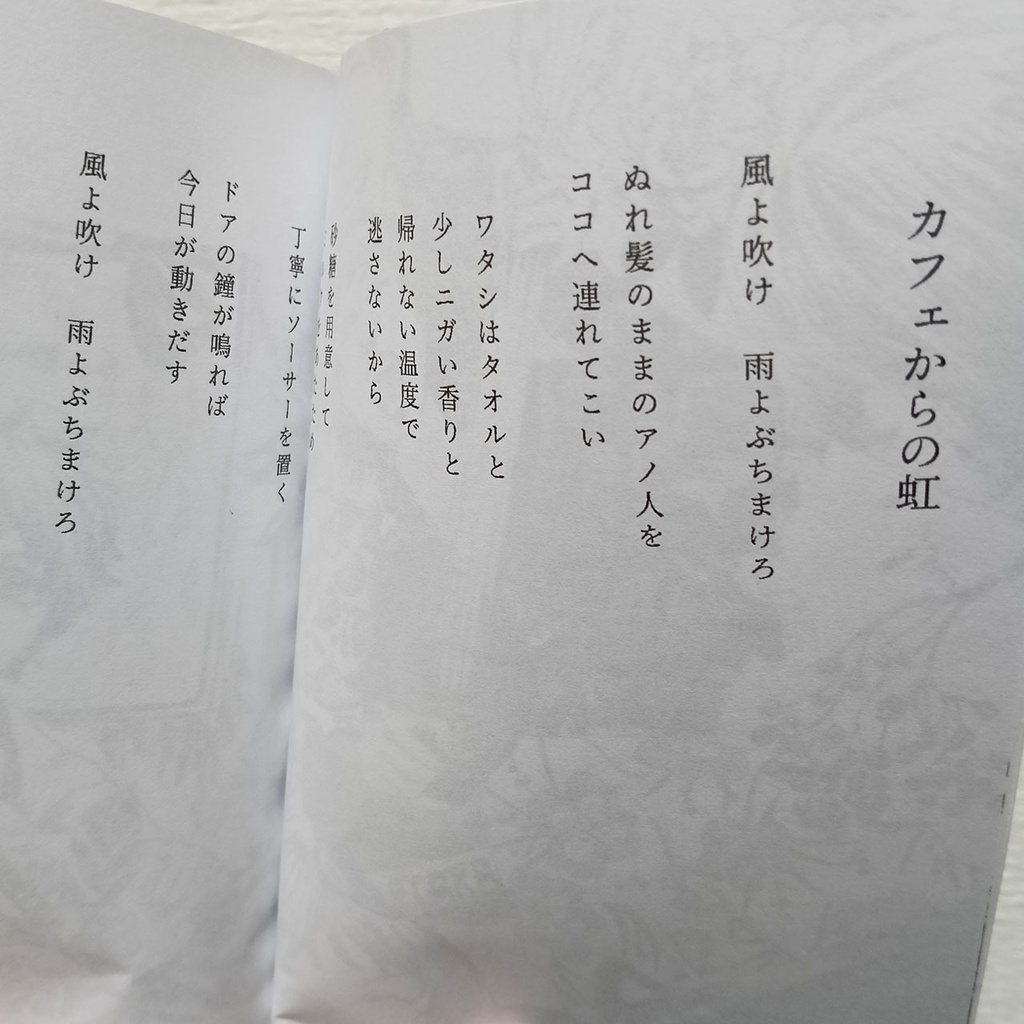 カフェからの虹
風よ吹け　雨よぶちまけろ
ぬれ髪のままのアノ人を
ココへ連れてこい
ワタシはタオルと
少しニガい香りと
帰れない温度で
逃さないから
砂糖を用意して
丁寧にソーサーを置く
ドアの鐘が鳴れば
今日が動きだす
風よ吹け　雨よぶちまけろ